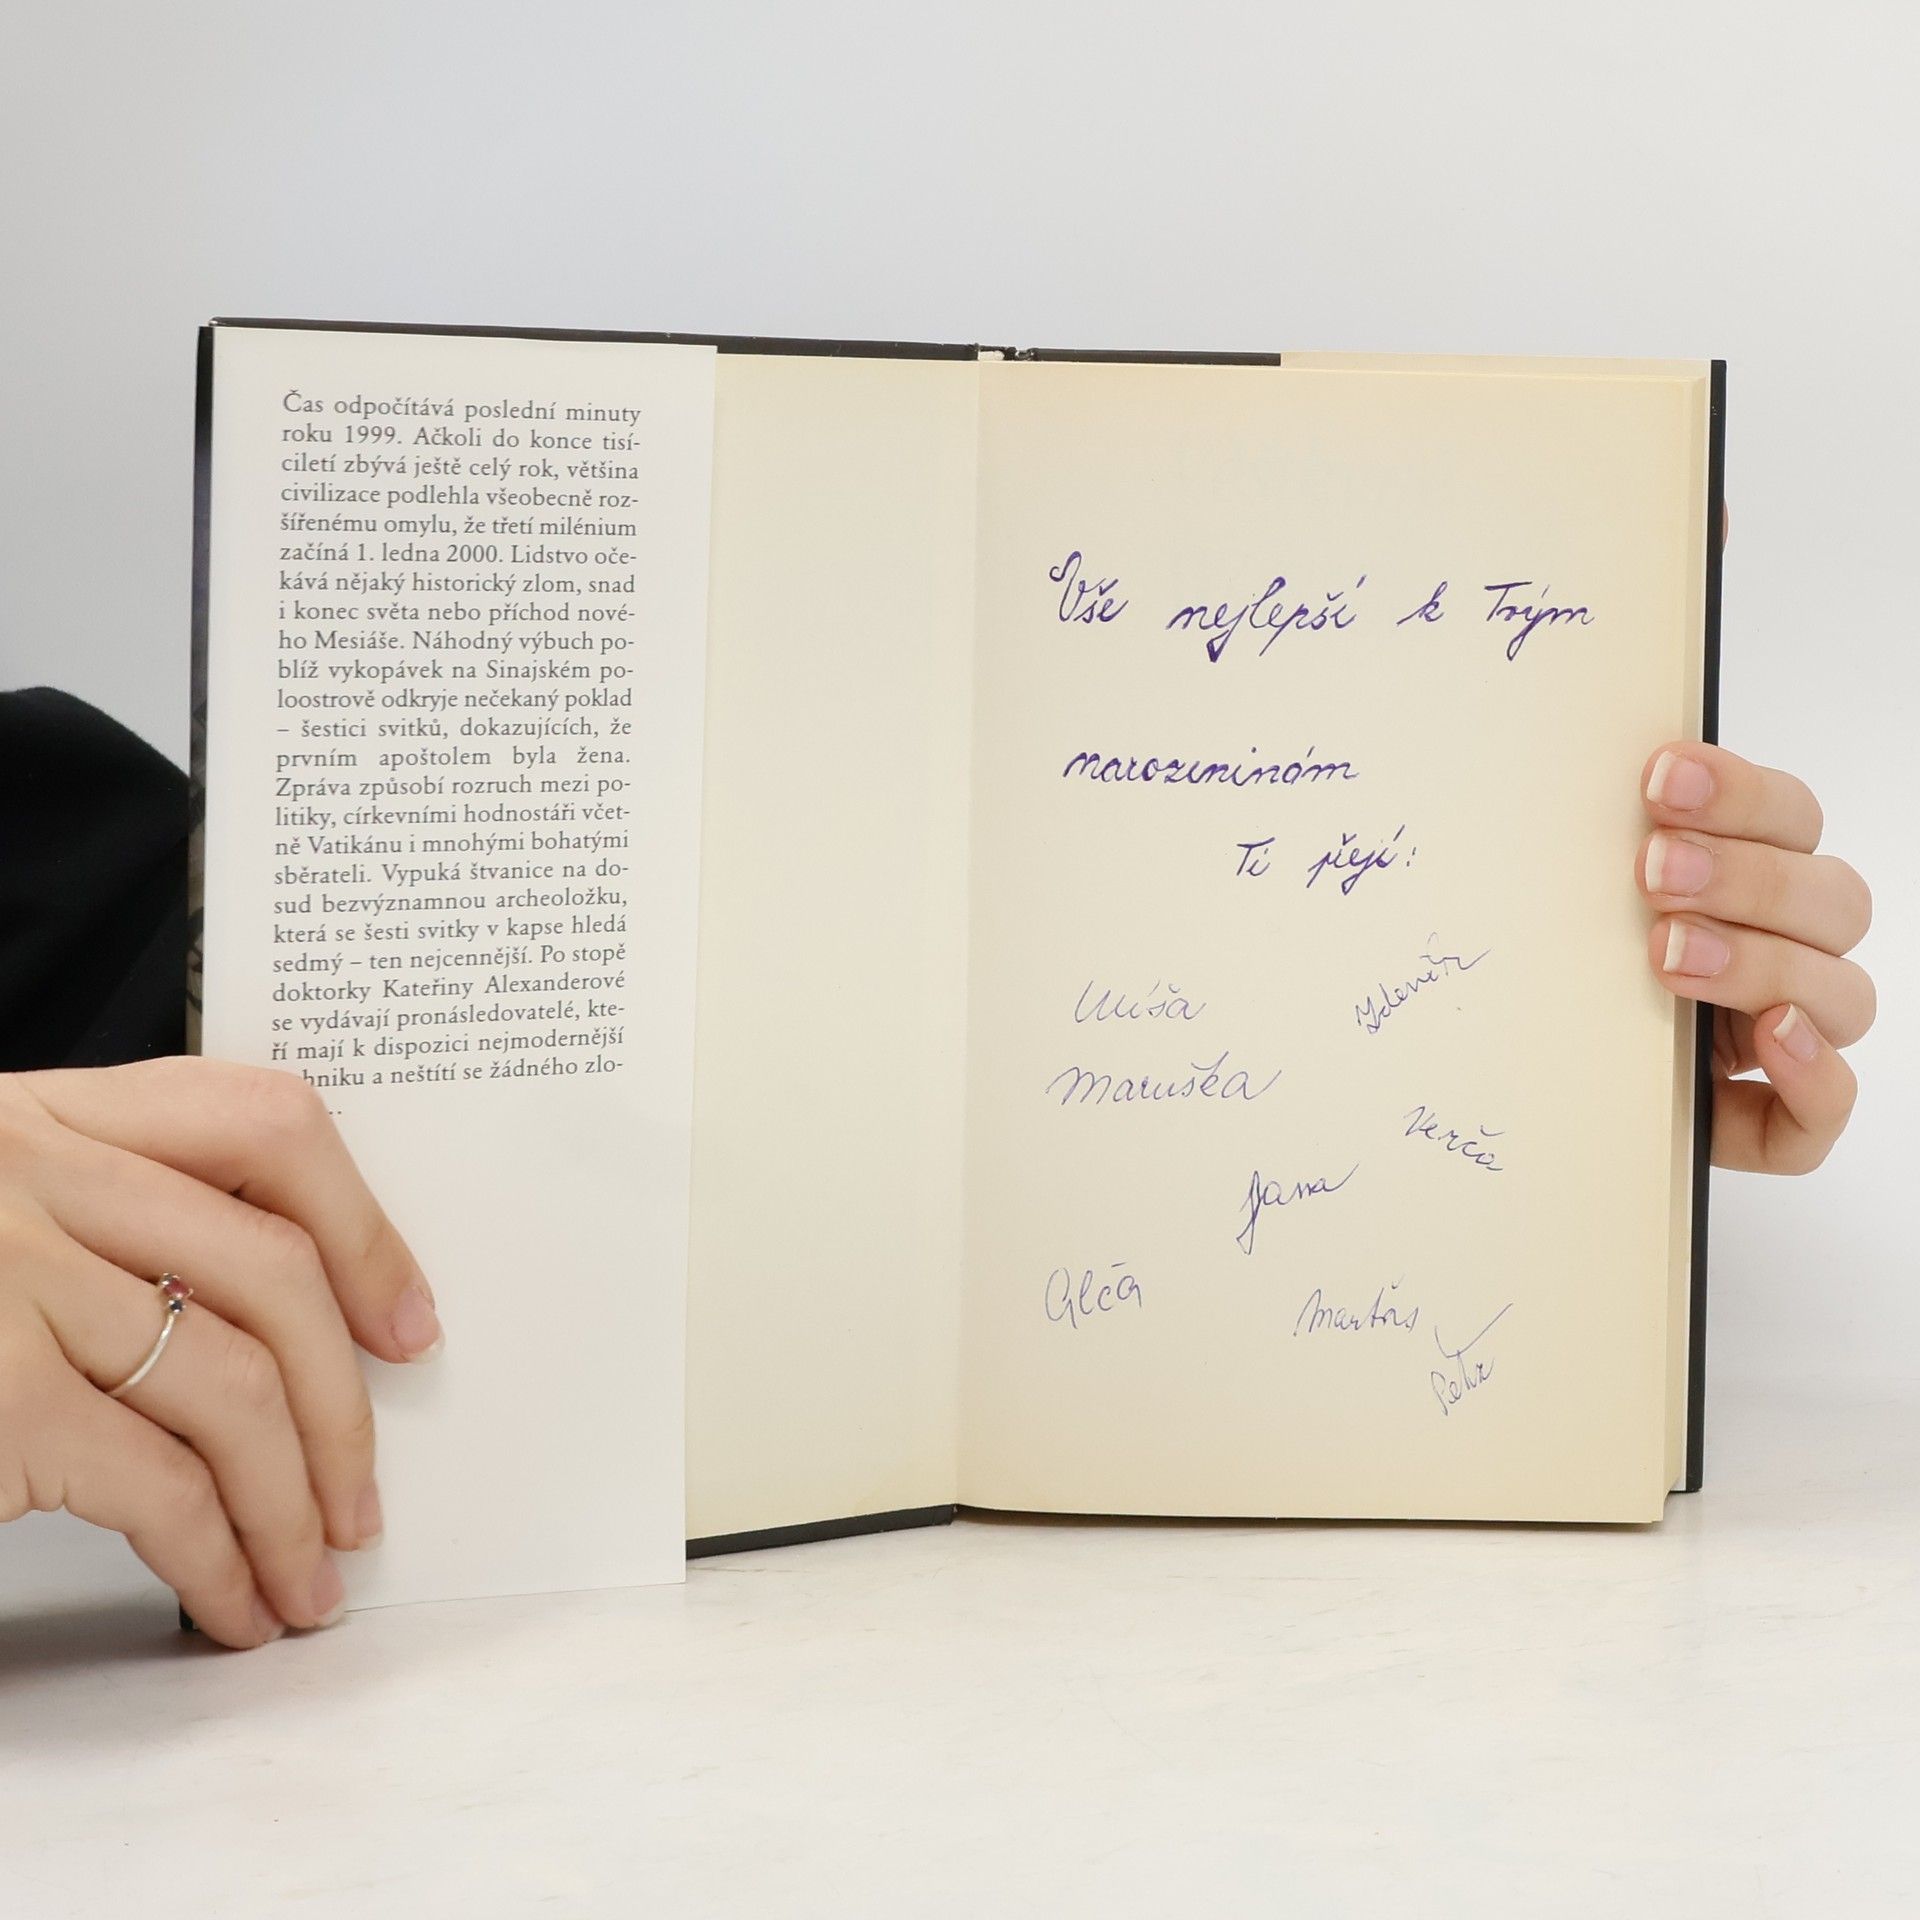 Čas odpočítává poslední minuty
roku 1999. Ačkoli do konce tisí-
ciletí zbývá ještě celý rok, většina
civilizace podlehla všeobecně roz-
šířenému omylu, že třetí milénium
začíná 1. ledna 2000. Lidstvo oče-
kává nějaký historický zlom, snad
i konec světa nebo příchod nové-
ho Mesiáše. Náhodný výbuch po-
blíž vykopávek na Sinajském po-
loostrově odkryje nečekaný poklad
– šestici svitků, dokazujících, že
prvním apoštolem byla žena.
Zpráva způsobí rozruch mezi po-
litiky, církevními hodnostáři včet-
ně Vatikánu i mnohými bohatými
sběrateli. Vypuká štvanice na do-
sud bezvýznamnou archeoložku,
která se šesti svitky v kapse hledá
sedmý – ten nejcennější. Po stopě
doktorky Kateřiny Alexanderové
se vydávají pronásledovatelé, kte-
ří mají k dispozici nejmodernější
hniku a neštítí se žádného zlo-
..
Vše nejlepší k Tvým
narozeninám
Ti přejí:
Míša
Maruška
Verča
Jana
Alča
Petr